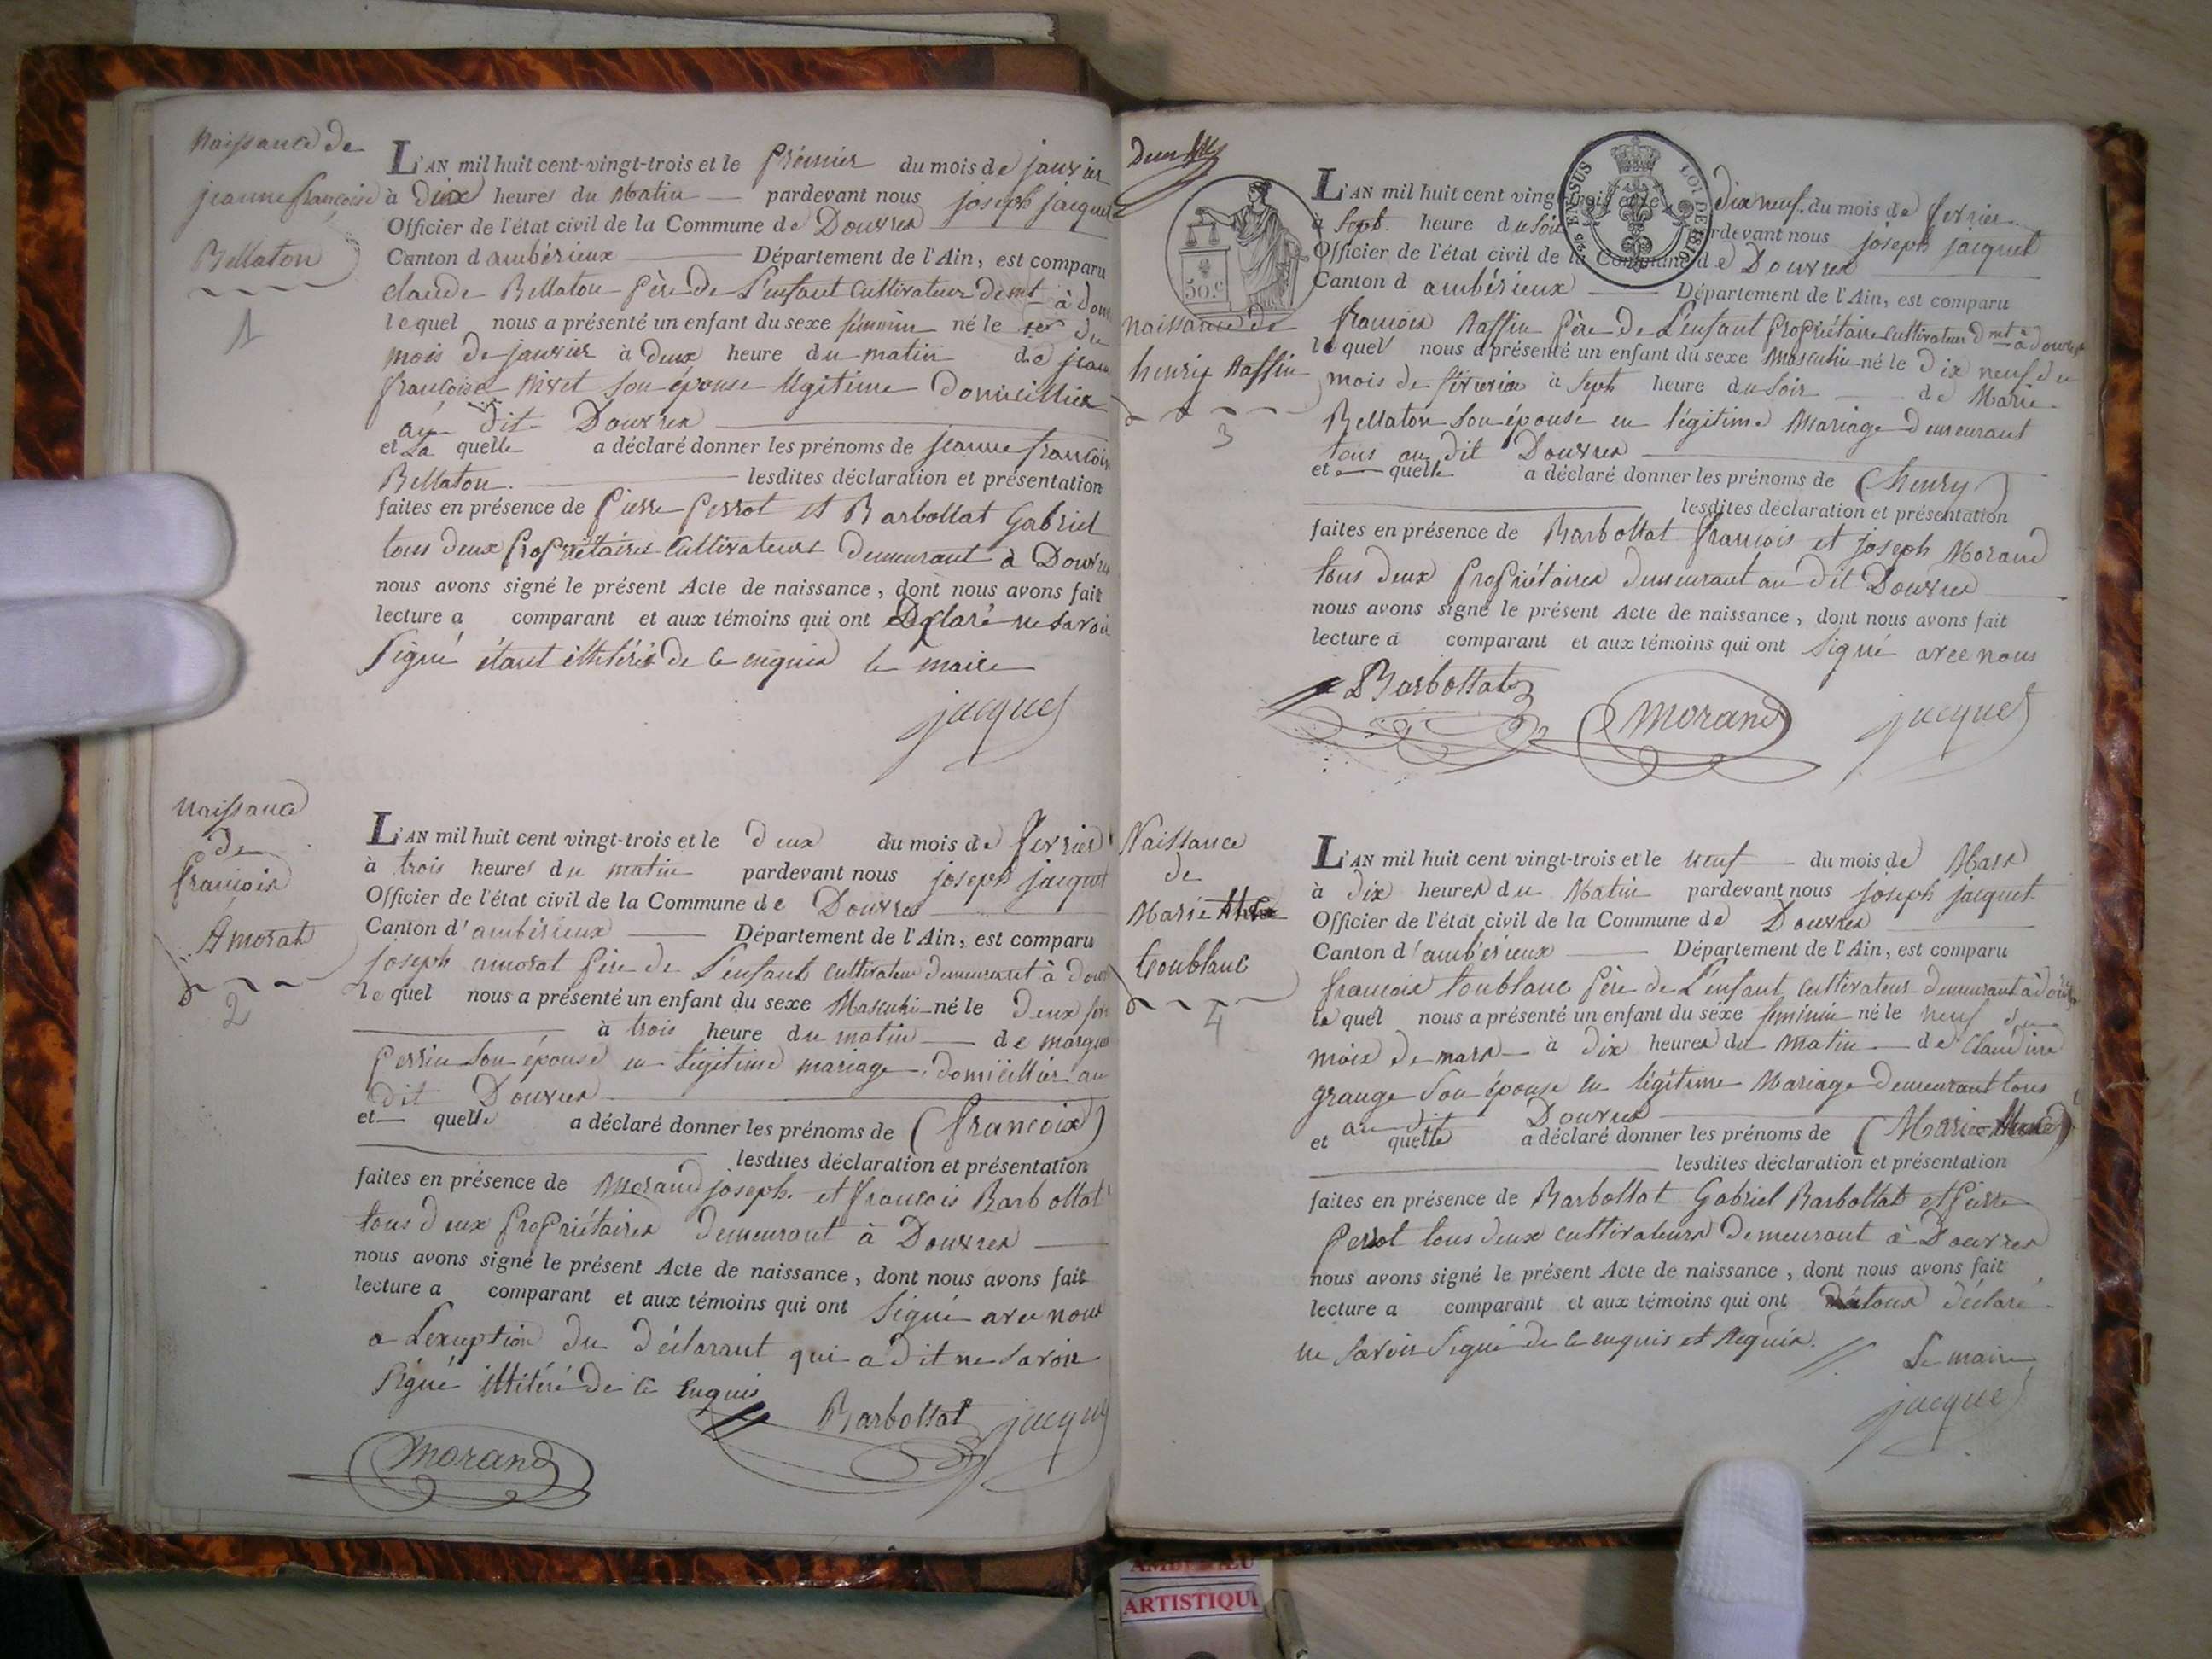 Naissance de
jeanne françoise
Bellaton
1
L'AN mil huit cent-vingt-trois et le prémier du mois de janvier
à dix heures du Matin pardevant nous joseph jacquet
Officier de l'état civil de la Commune de Douvres
Canton d ambérieux Département de l'Ain, est comparu
claude Bellaton père de L'enfant Cultivateur demt à Douv
lequel nous a présenté un enfant du sexe féminin né le 1er du
mois de janvier à deux heure du matin de jean
françoise Nivet son épouse légitime Domicillier
au dit Douvres
et La quelle a déclaré donner les prénoms de jeanne francois
Bellaton. lesdites déclaration et présentation
faites en présence de pierre perrot et Barbollat Gabriel
tous deux propriétaires Cultivateurs demeurant à Douvres
nous avons signé le présent Acte de naissance, dont nous avons fait
lecture a comparant et aux témoins qui ont Déclaré ne savoir
signé étant illitéré de ce enquis le maire
jacquet
Naissance
de
françois
Amorat
2
L'AN mil huit cent vingt-trois et le deux du mois de fevrier
à trois heures du matin pardevant nous joseph jacquet
Officier de l'état civil de la Commune de Douvres
Canton d'ambérieux Département de l'Ain, est comparu
joseph amorat père de L'enfant cultivateur demeurant à douv
lequel nous a présenté un enfant du sexe Masculin né le deux fev
à trois heure du matin de margue
perrin son épouse en légitime mariage, domicillier au
dit Douvres
et quelle a déclaré donner les prénoms de (françois)
lesdites déclaration et présentation
faites en présence de Morand joseph. et françois Barbollat
tous deux propriétaires demeurant à Douvres
nous avons signé le présent Acte de naissance, dont nous avons fait
lecture a comparant et aux témoins qui ont signé avec nous
a Lexception du déclarant qui a dit ne savoir
signé illitéré de ce Enquis
Barbollat jacquet
Morand
50.c
LOI DE
Naissance de
henry Raffin
3
L'AN mil huit cent vingt-trois et le dix neuf. du mois de fevrier
à sept. heure du soir pardevant nous joseph jacquet
Officier de l'état civil de la Commune de Douvres
Canton d ambérieux Département de l'Ain, est comparu
françois Raffin père de L'enfant propriétaire cultivateur dmt à douvres
lequel nous a présenté un enfant du sexe Masculin né le dix neuf du
mois de février à sept heure du soir de Marie
Bellaton son épouse en légitime Mariage demeurant
tous au dit Douvres
et quelle a déclaré donner les prénoms de (henry)
lesdites déclaration et présentation
faites en présence de Barbollat françois et joseph Morand
tous deux propriétaires demeurant au dit Douvres
nous avons signé le présent Acte de naissance, dont nous avons fait
lecture a comparant et aux témoins qui ont signé avec nous
Barbollat Morand jacquet
Naissance
de
Marie
Toublanc
4
L'AN mil huit cent vingt-trois et le neuf du mois de Mars
à dix heures du Matin pardevant nous joseph jacquet
Officier de l'état civil de la Commune de Douvres
Canton d'ambérieux Département de l'Ain, est comparu
françois toublanc père de L'enfant cultivateur demeurant à douvres
lequel nous a présenté un enfant du sexe feminin né le neuf du
mois de mars à dix heures du matin de Claudine
grange son épouse en légitime Mariage demeurant tous
au dit Douvres
et quelle a déclaré donner les prénoms de (Marie
lesdites déclaration et présentation
faites en présence de Barbollat Gabriel Barbollat et pierre
perrot tous deux cultivateurs demeurant à Douvres
nous avons signé le présent Acte de naissance, dont nous avons fait
lecture a comparant et aux témoins qui ont tous déclaré
ne savoir signé de ce enquis et Réquis. Le maire
jacquet
ARTISTIQU